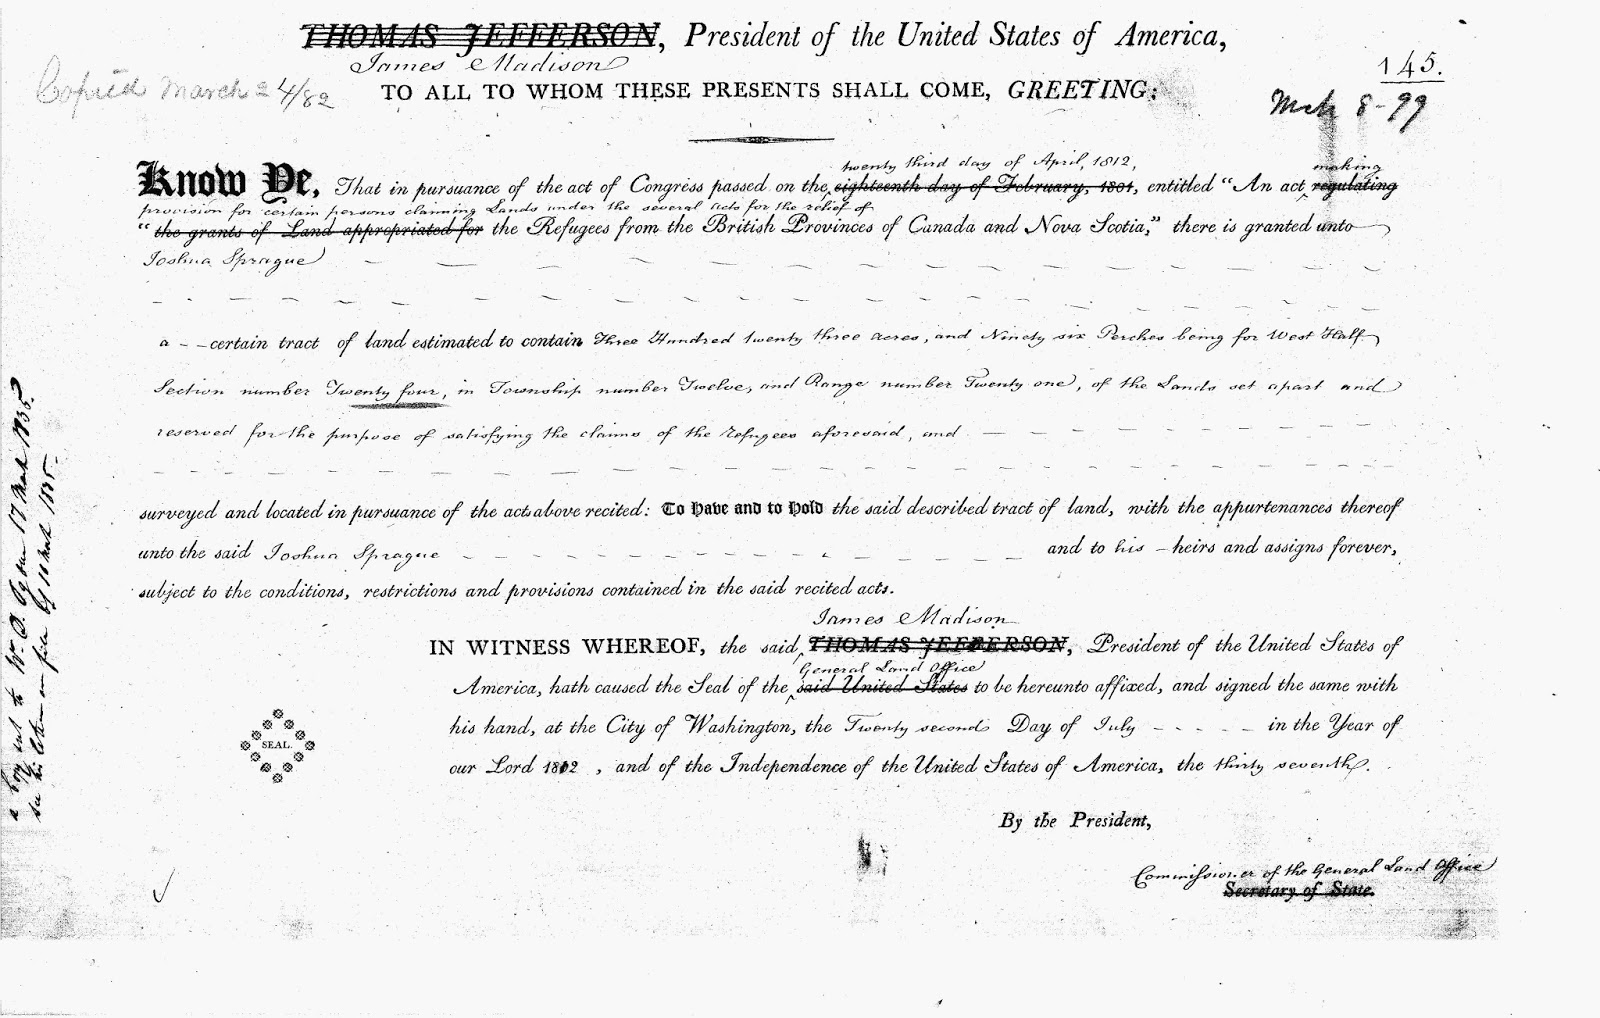 THOMAS JEFFERSON, President of the United States of America,
James Madison
145.
Copied March 24/82
TO ALL TO WHOM THESE PRESENTS SHALL COME, GREETING:
Mch 8-99
twenty third day of April, 1812, making
Know Ye, That in pursuance of the act of Congress passed on the eighteenth day of February, 1801, entitled "An act regulating
provision for certain persons claiming Lands under the several acts for the relief of
" the grants of Land appropriated for the Refugees from the British Provinces of Canada and Nova Scotia," there is granted unto
Joshua Sprague
a - - certain tract of land estimated to contain Three Hundred twenty three acres, and Ninety six Perches being for West Half
Section number Twenty four, in Township number Twelve, and Range number Twenty one, of the Lands set apart and
reserved for the purpose of satisfying the claims of the Refugees aforesaid, and
surveyed and located in pursuance of the acts above recited: To Have and to Hold the said described tract of land, with the appurtenances thereof
unto the said Joshua Sprague and to his - heirs and assigns forever,
subject to the conditions, restrictions and provisions contained in the said recited acts.
James Madison
IN WITNESS WHEREOF, the said THOMAS JEFFERSON, President of the United States of
General Land Office
America, hath caused the Seal of the said United States to be hereunto affixed, and signed the same with
his hand, at the City of Washington, the Twenty second Day of July - - - - - in the Year of
SEAL.
our Lord 1812 , and of the Independence of the United States of America, the thirty seventh.
By the President,
Commissioner of the General Land Office
Secretary of State.
a copy sent to Wm 17 Mch 1835.